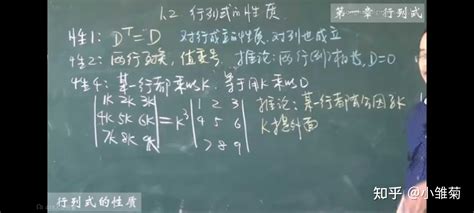 1.2 行列式的性质
第一章 行列式
性1: D^T=D 对行成立的性质,对列也成立
性2: 两行互换,值变号. 推论: 两行(列)相等, D=0
性4: 某一行都乘以K, 等于用K乘以D
|1K 2K 3K| |1 2 3| 推论: 某一行都有公因子K
|4K 5K 6K| =K^3 |4 5 6| K提外面
|7K 8K 9K| |7 8 9|
行列式的性质
知乎 @小雏菊